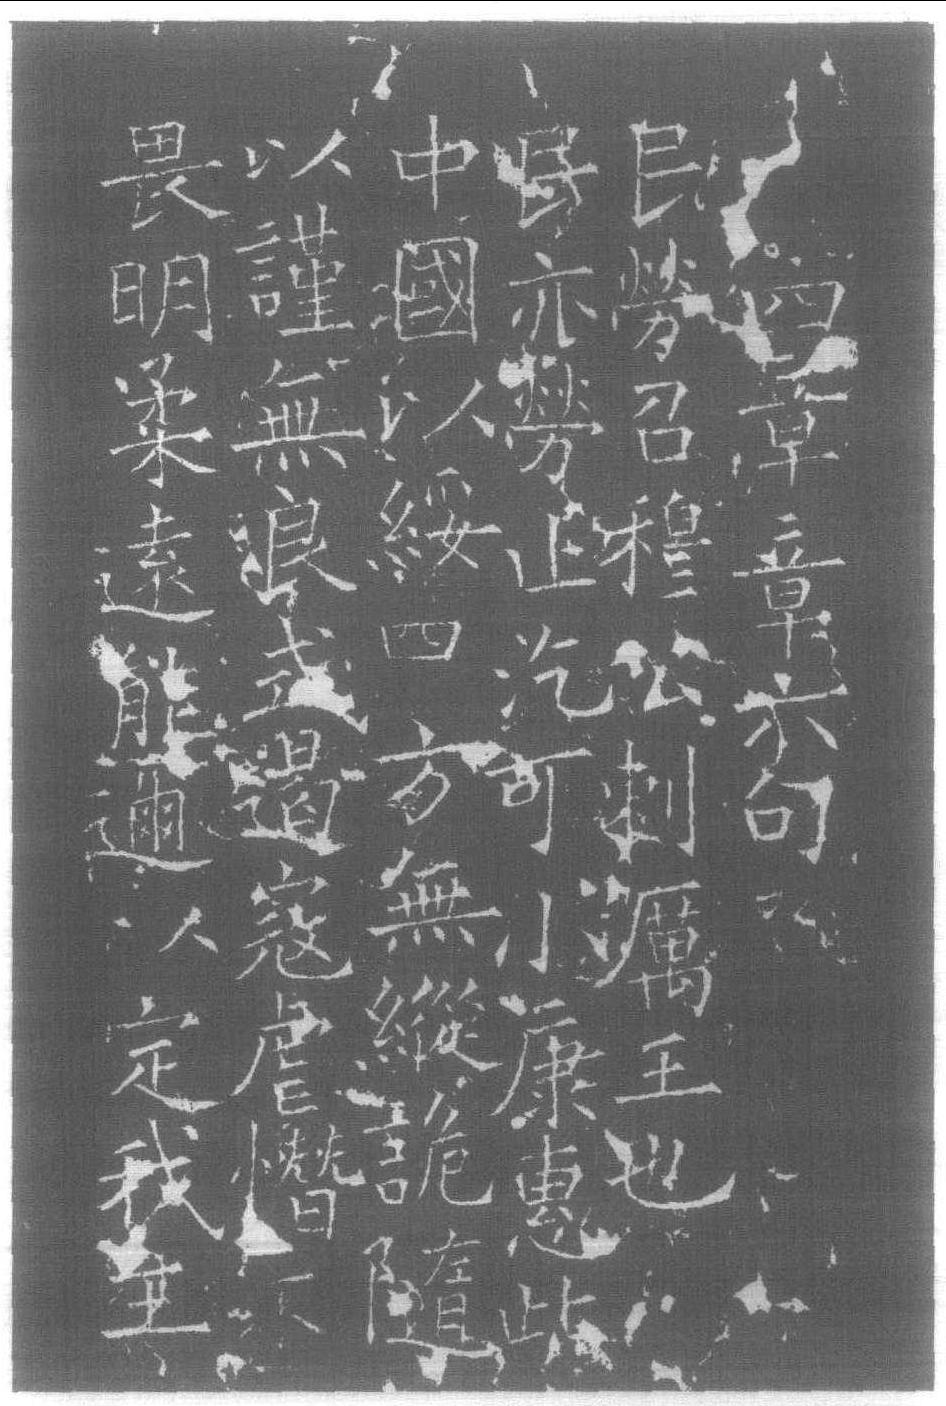 四章章六句
民勞召穆公刺厲王也
民亦勞止汔可小康惠此
中國以綏四方無縱詭隨
以謹無良式遏寇虐憯不
畏明柔遠能邇以定我王